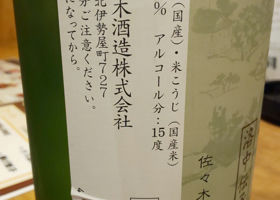 洛中伝
佐々木
(国産)・米こうじ(国産米)
% アルコール分:15度
木酒造株式会社
北伊勢屋町727
分ご注意ください。
になってから。